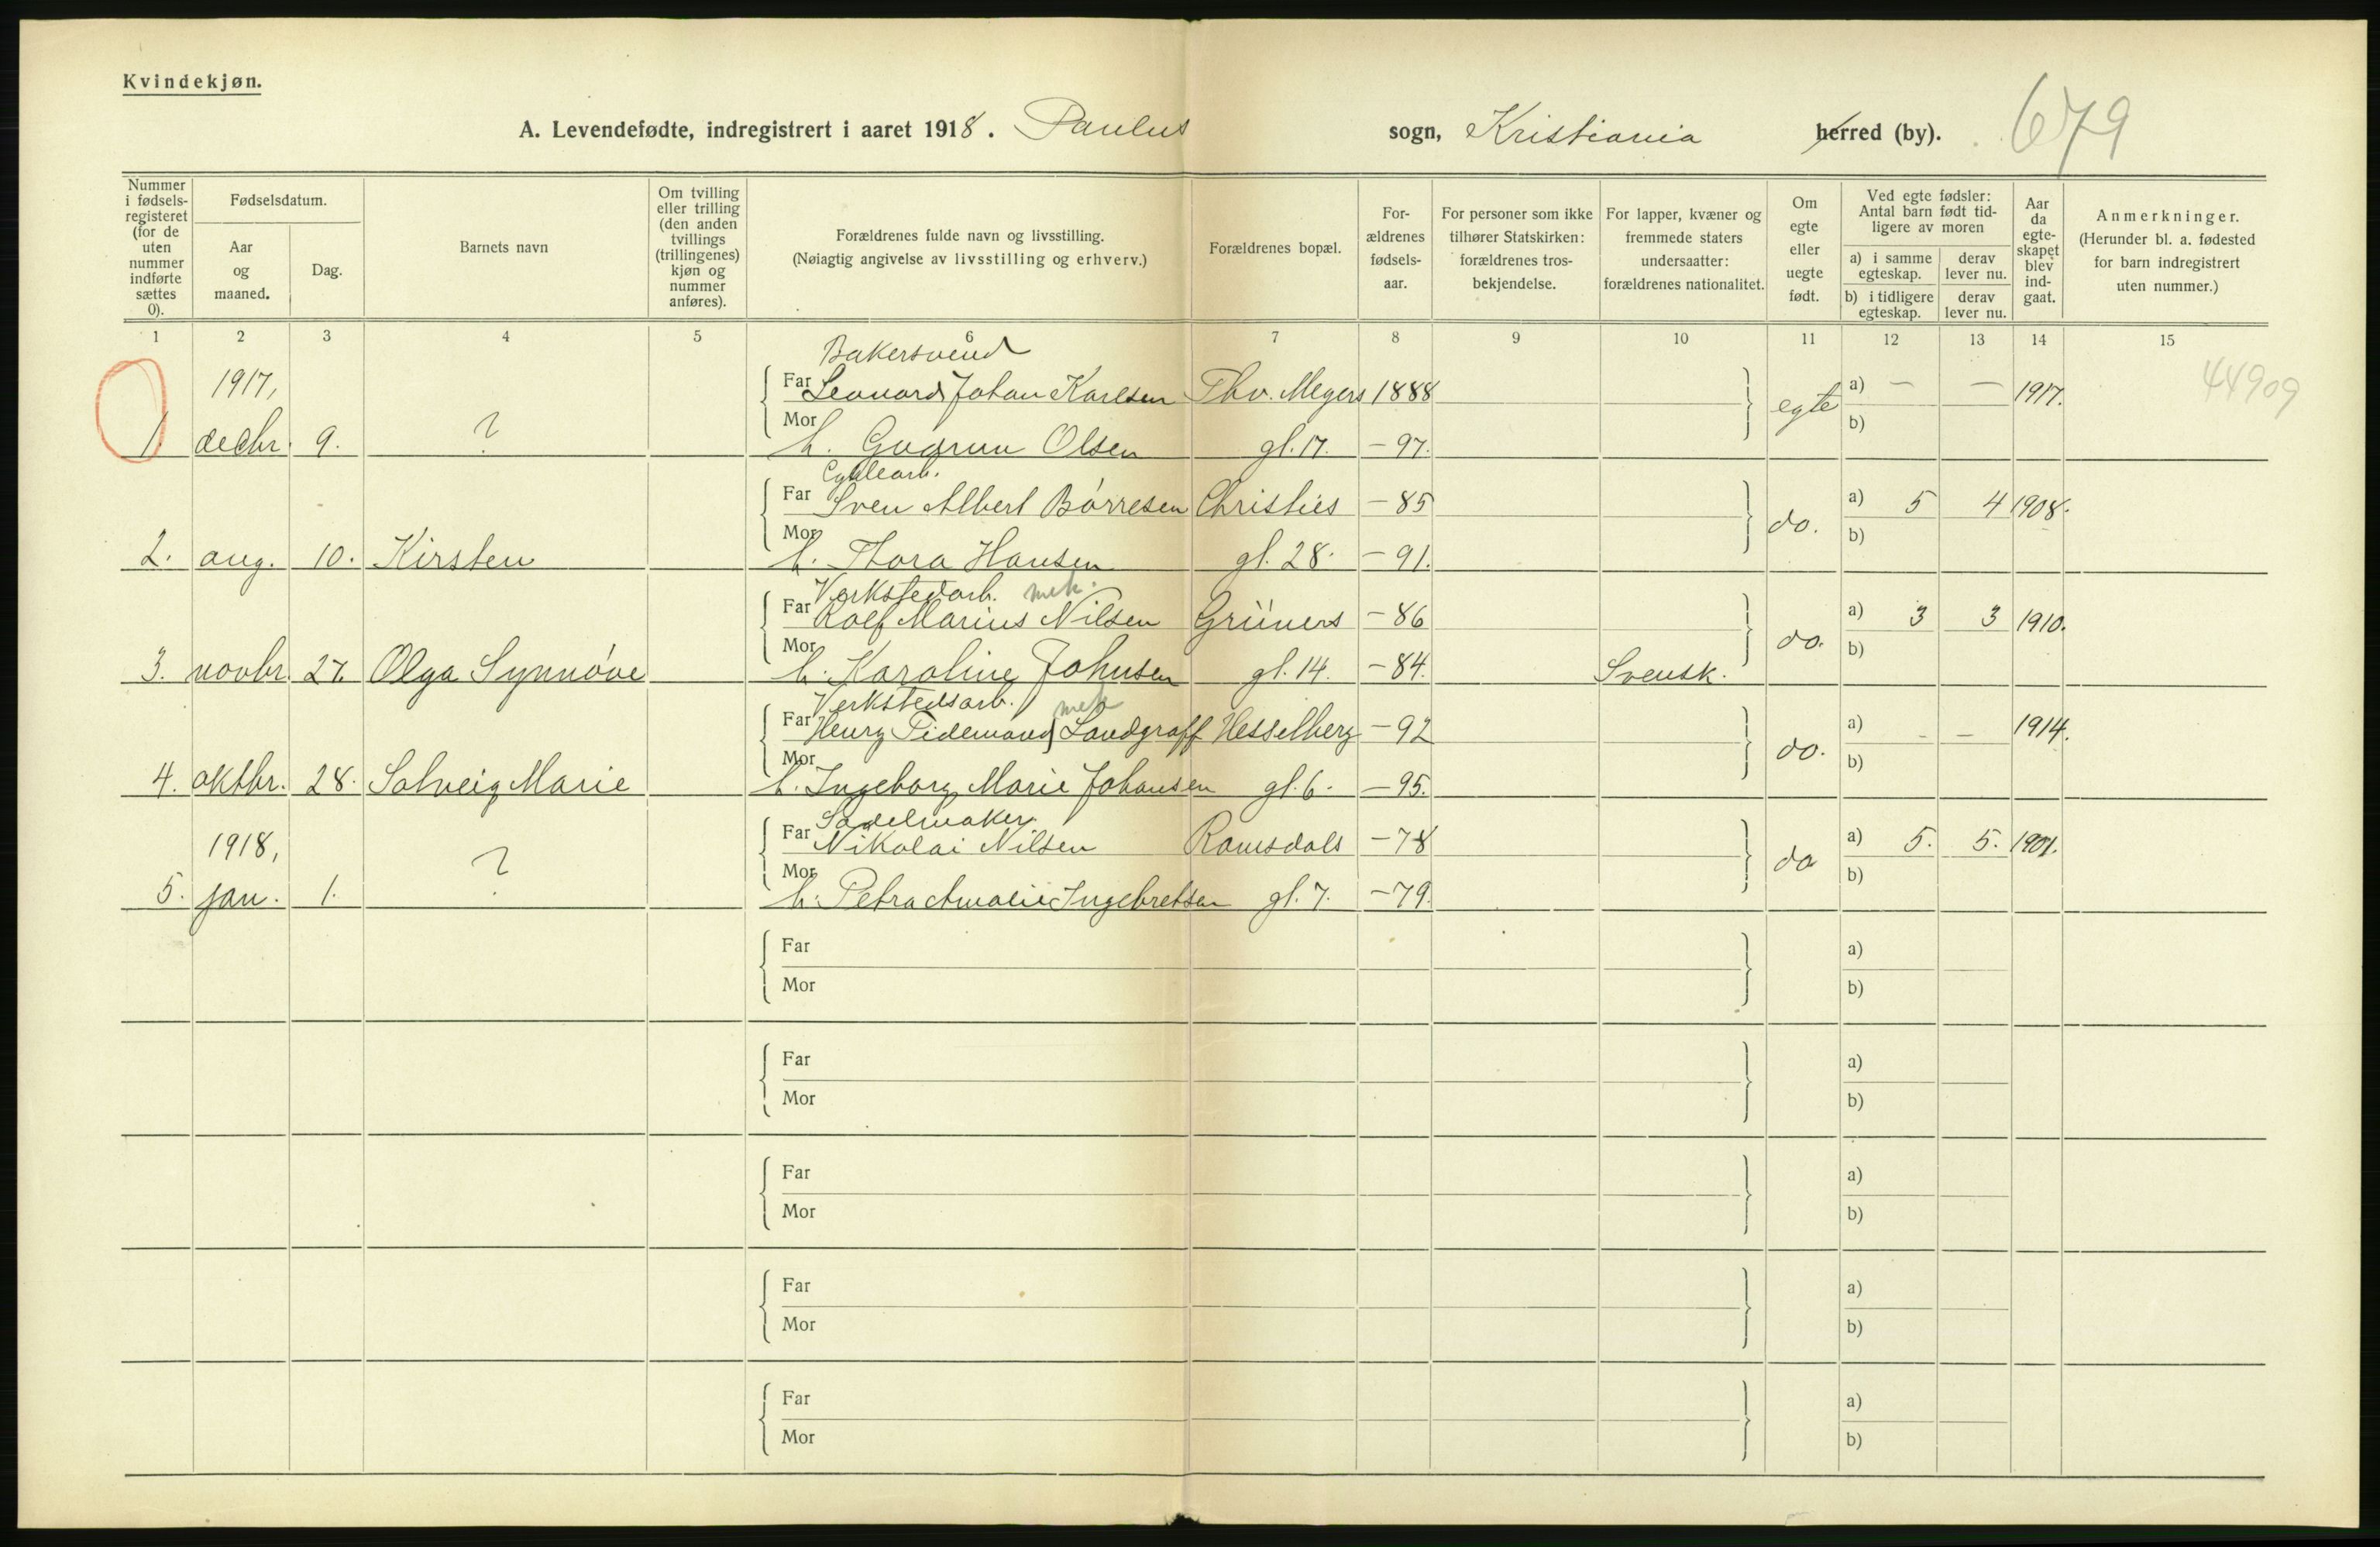 Kvindekjøn.
A. Levendefødte, indregistrert i aaret 1918. Paulus sogn, Kristiania herred (by). 679
Nummer i fødsels-registeret (for de uten nummer indførte sættes 0).
Fødselsdatum.
Aar og maaned.
Dag.
Barnets navn
Om tvilling eller trilling (den anden tvillings (trillingenes) kjøn og nummer anføres).
Forældrenes fulde navn og livsstilling.
(Nøiagtig angivelse av livsstilling og erhverv.)
Forældrenes bopæl.
For-ældrenes fødsels-aar.
For personer som ikke tilhører Statskirken: forældrenes tros-bekjendelse.
For lapper, kvæner og fremmede staters undersaatter: forældrenes nationalitet.
Om egte eller uegte født.
Ved egte fødsler: Antal barn født tid-ligere av moren
a) i samme egteskap.
derav lever nu.
b) i tidligere egteskap.
derav lever nu.
Aar da egte-skapet blev ind-gaat.
Anmerkninger.
(Herunder bl. a. fødested for barn indregistrert uten nummer.)
1 2 3 4 5 6 7 8 9 10 11 12 13 14 15
Bakersvend
1917, Far Leonard Johan Karlsen Thv. Meyers 1888 a) — — 1917. 44909
1. decbr. 9. ? Mor h. Gudrun Olsen gl. 17. - 97. egte b)
Far Sven Albert Børresen Christies - 85 a) 5 4 1908.
2. aug. 10. Kirsten Mor h. Thora Hansen gl. 28. - 91. do. b)
Verkstedarb. mek.
Far Rolf Marius Nilsen Grüners - 86 a) 3 3 1910.
3. novbr. 27. Olga Synnøve Mor h. Karoline Johnsen gl. 14. - 84. Svensk. do. b)
Verkstedsarb. mek
Far Henry Tidemand Landgraff Hesselberg - 92 a) - — 1914.
4. oktbr. 28. Solveig Marie Mor h. Ingeborg Marie Johansen gl. 6. - 95. do. b)
Sadelmaker
1918, Far Nikolai Nilsen Romsdals - 78 a) 5. 5. 1901.
5. jan. 1. ? Mor h. Petra Amalie Ingebretsen gl. 7. - 79. do b)
Far a)
Mor b)
Far a)
Mor b)
Far a)
Mor b)
Far a)
Mor b)
Far a)
Mor b)